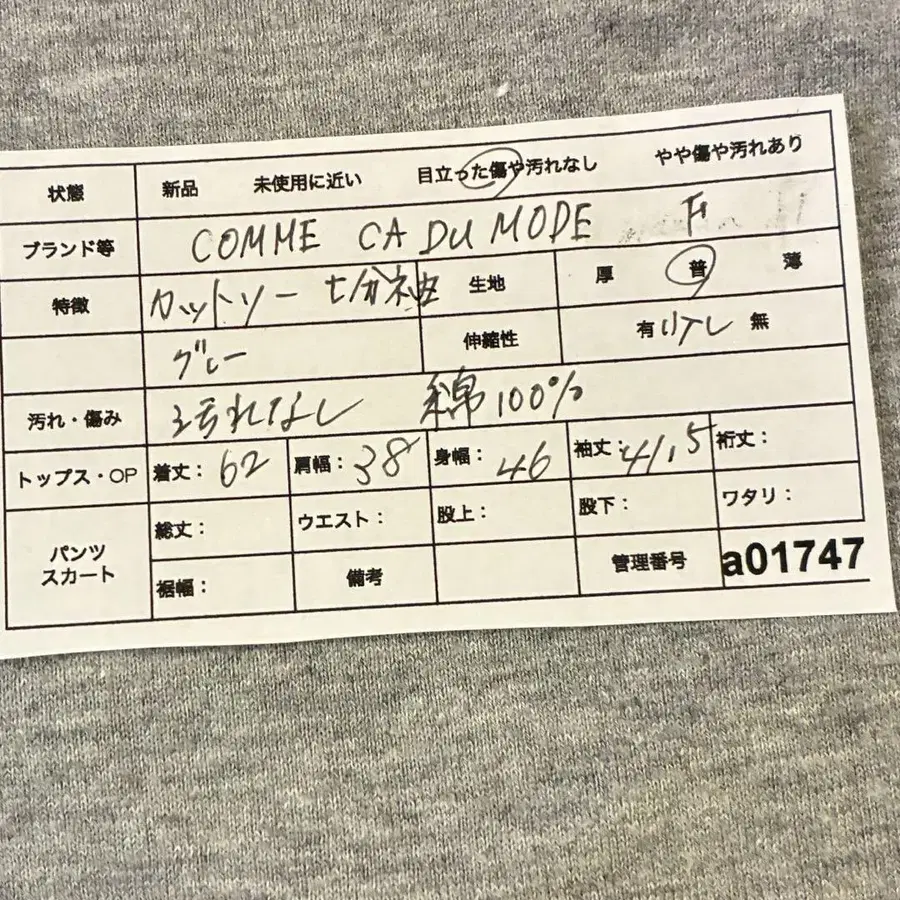 状態 新品 未使用に近い 目立った傷や汚れなし やや傷や汚れあり
ブランド等 COMME CA DU MODE F
特徴 カットソー 七分袖 生地 厚 普 薄
グレー 伸縮性 有 少し 無
汚れ・傷み 汚れなし 綿100%
トップス・OP 着丈: 62 肩幅: 38 身幅: 46 袖丈: 41.5 裄丈:
パンツ スカート 総丈: ウエスト: 股上: 股下: ワタリ:
裾幅: 備考 管理番号 a01747